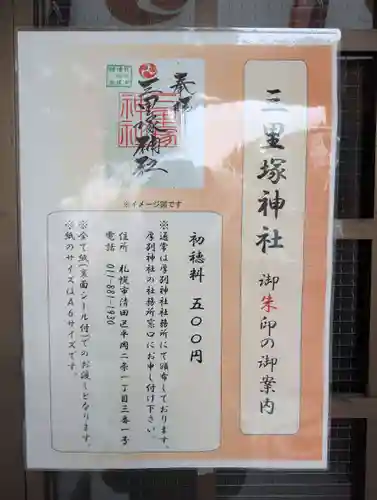 三里塚神社 御朱印の御案内
奉拝
三里塚神社
※イメージ図です
初穂料 五〇〇円
※通常は厚別神社社務所にて頒布しております。
厚別神社の社務所窓口にお申し付け下さい。
住所 札幌市清田区平岡二条一丁目三番一号
電話 011-881-1930
※全て紙(裏面シール付)でのお渡しとなります。
※紙のサイズはA6サイズです。